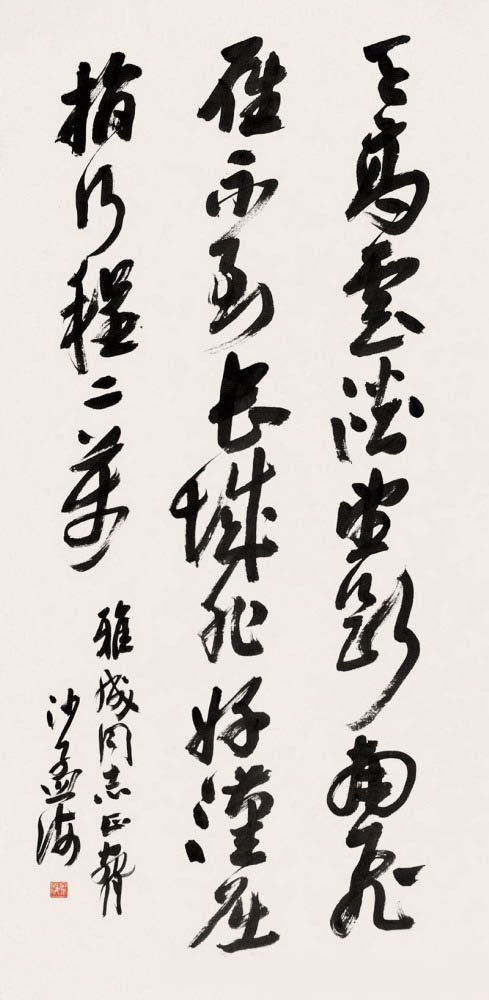 天高雲澹望斷南飛
雁不到長城非好漢屈
指行程二萬
雅成同志正
沙孟海